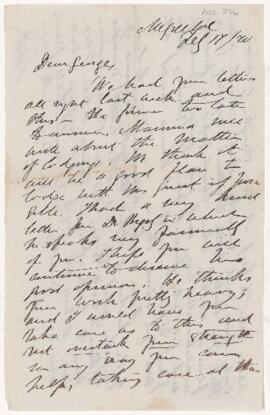 Feby 18/90
Dear George,
We had your letters
all right last week and
this — the former too late
to answer. Mamma will
write about the matter
of lodging. We think it
will be a good plan to
lodge with Mrs if pos
sible. I had a very kind
letter from Dr in which
he speaks very warmly
of you. I hope you will
continue to deserve his
good opinion. He thinks
your work pretty heavy;
and I would have you
take care as to this and
not overtask your strength
in any way you can
help; taking care at the